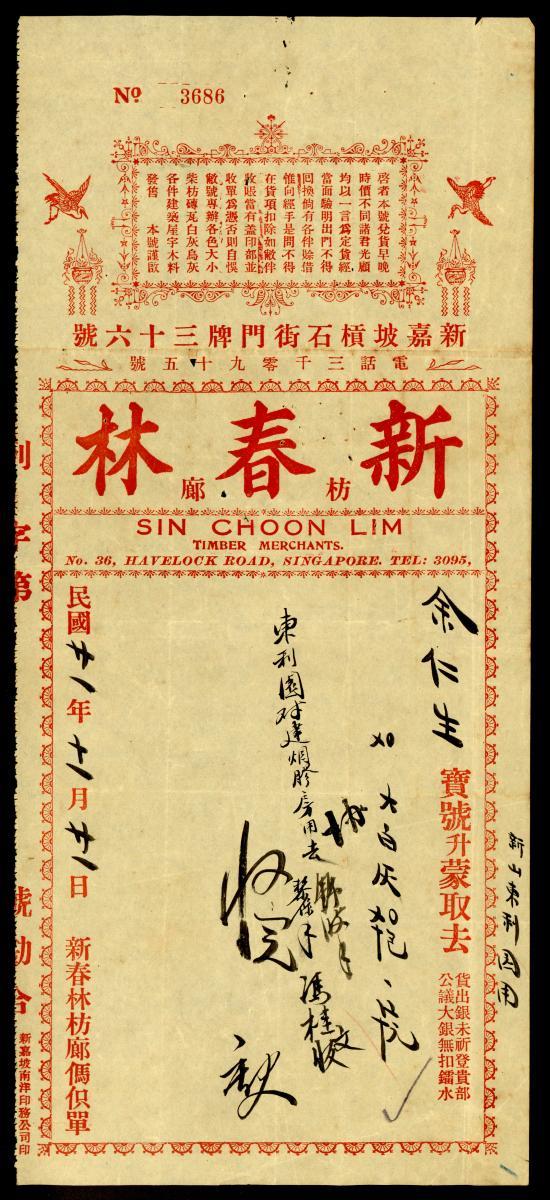 No 3686
啓者本號兌貨早晚
時價不同諸君光顧
均以一言爲定貨經
當面驗明出門不得
囘換倘有各伴賒借
惟向經手是問不得
在貨項扣除如敝伴
收賬當有蓋印部並
收單爲憑否則自悞
敝號專辦各色大小
柴枋磚瓦白灰烏灰
各件建築屋宇木料
發售 本號謹啟
新嘉坡槓石街門牌三十六號
電話三千零九十五號
新春林
枋廊
SIN CHOON LIM
TIMBER MERCHANTS.
No. 36, HAVELOCK ROAD, SINGAPORE. TEL: 3095,
新山東利園用
余仁生 寶號升蒙取去
貨出銀未祈登貴部
公議大銀無扣鐳水
大白灰
東利園對建烟膠房用去
馮桂
收完
民國廿一年十一月廿一日 新春林枋廊傌俱單
字第
號勘合
新嘉坡南洋印務公司印